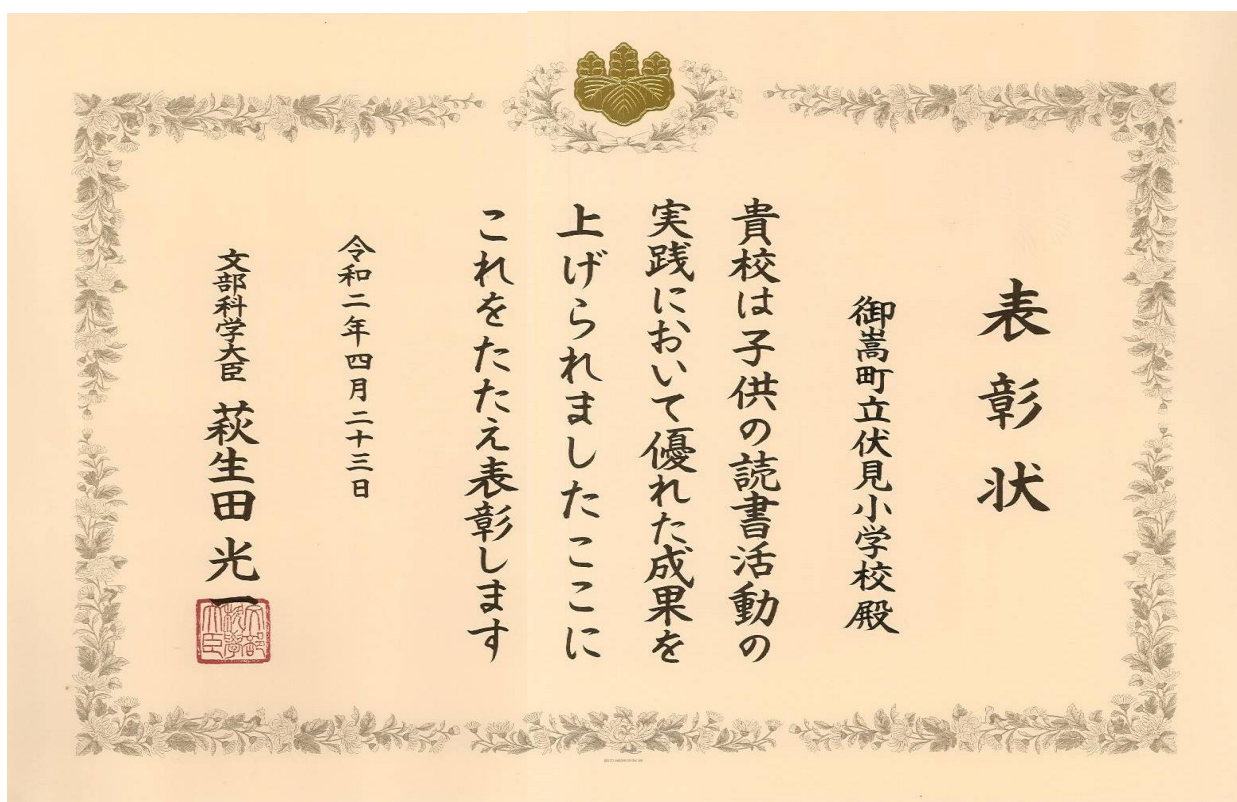 表彰状
御嵩町立伏見小学校殿
貴校は子供の読書活動の
実践において優れた成果を
上げられましたここに
これをたたえ表彰します
令和二年四月二十三日
文部科学大臣 萩生田光一
文部科学大臣